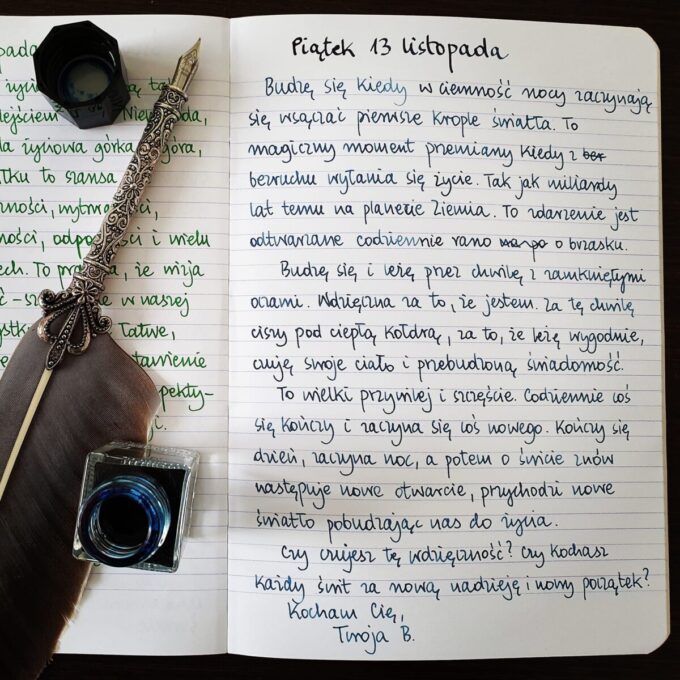 pada
życiow
ejściem
Niew da,
da życiowa górka, góra,
tku to szansa
ności, wytrwa ci,
ności, odpo ści i wielu
ech. To pra a, że mija
ć – s ie w naszej
ystk Tatwe,
stawienie
spekty-
i.
Piątek 13 listopada
Budzę się kiedy w ciemność nocy zaczynają
się wsączać pierwsze krople światła. To
magiczny moment przemiany kiedy z bez
bezruchu wyłania się życie. Tak jak miliardy
lat temu na planecie Ziemia. To zdarzenie jest
odtwarzane codziennie rano o brzasku.
Budzę się i leżę przez chwilę z zamkniętymi
oczami. Wdzięczna za to, że jestem. Za tę chwilę
ciszy pod ciepłą kołdrą, za to, że leżę wygodnie,
czuję swoje ciało i przebudzoną świadomość.
To wielki przywilej i szczęście. Codziennie coś
się kończy i zaczyna się coś nowego. Kończy się
dzień, zaczyna noc, a potem o świcie znów
następuje nowe otwarcie, przychodzi nowe
światło pobudzając nas do życia.
Czy czujesz tę wdzięczność? Czy kochasz
każdy świt za nową nadzieję i nowy początek?
Kocham Cię,
Twoja B.